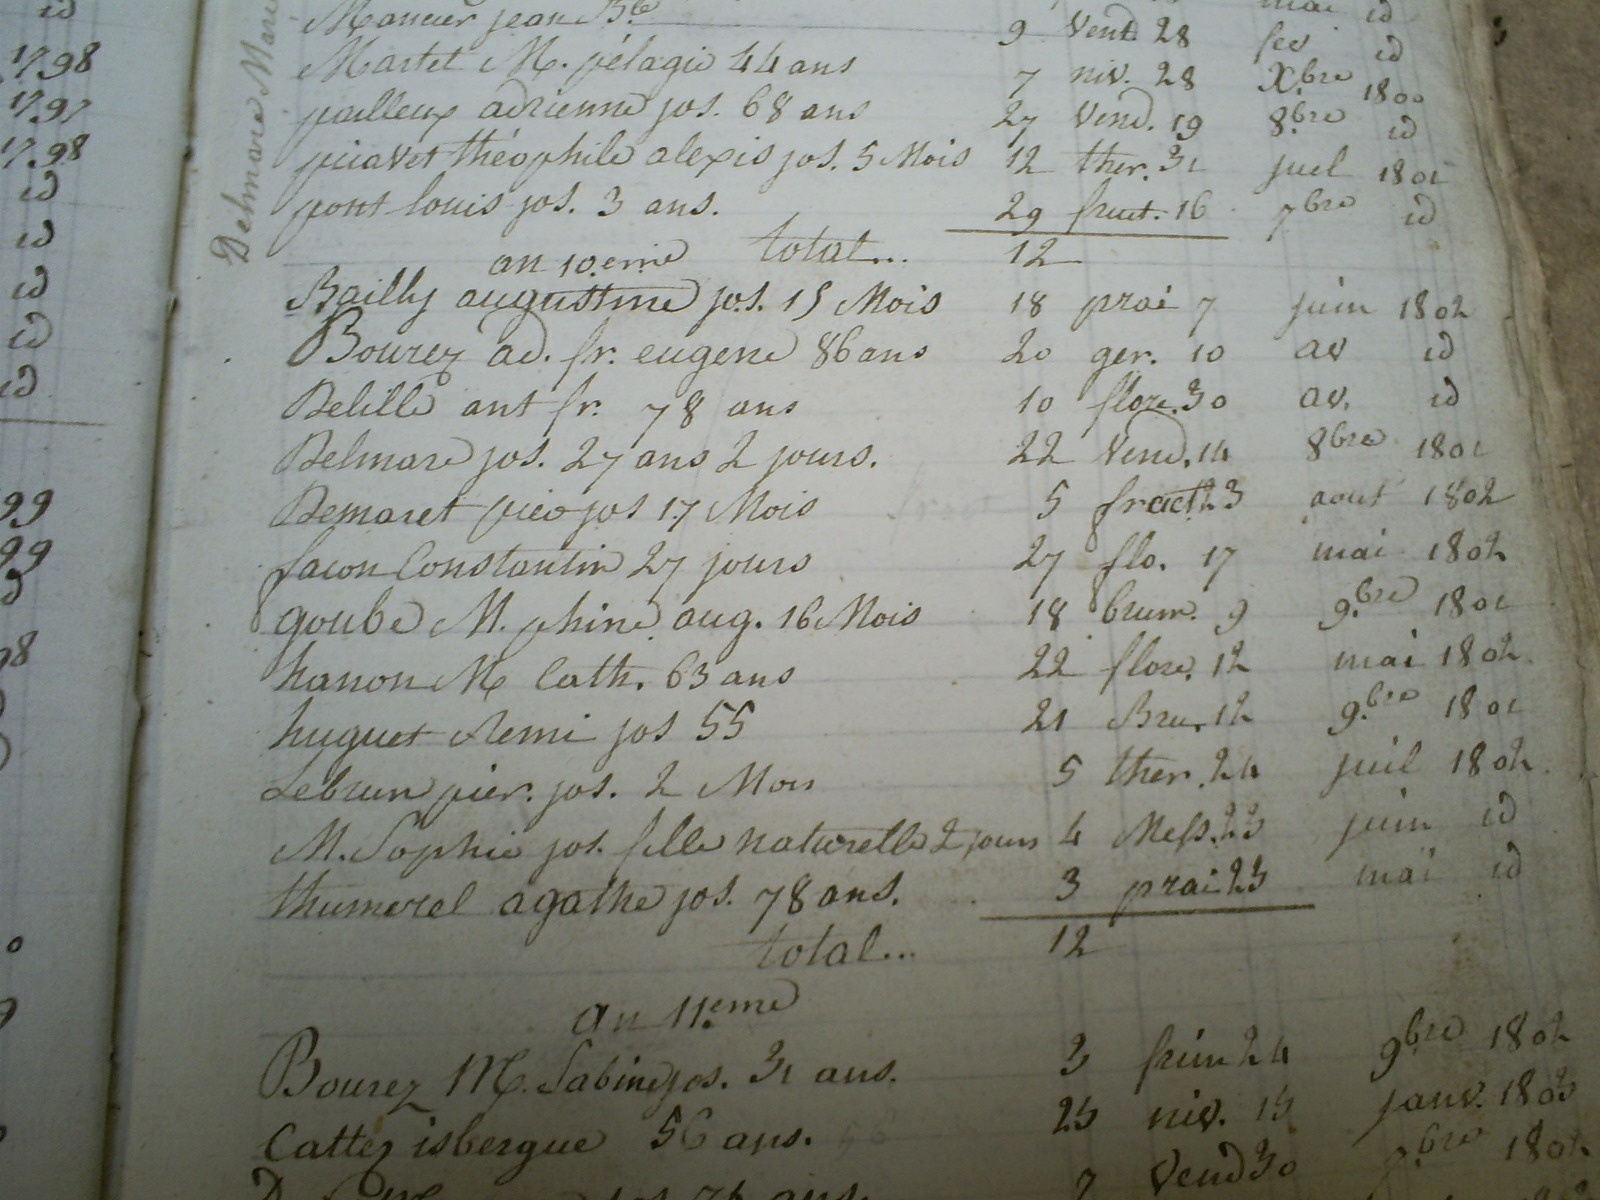 id
1798
1797
1798
id
id
id
id
id
99
99
98
Mancier jean Bte mai id
Martet M. pélagie 44 ans 9 vent. 28 fev id
pailleux adrienne jos. 68 ans 7 niv. 28 Xbre 1800
piavet théophile alexis jos. 5 Mois 27 Vend. 19 8bre id
pont louis jos. 3 ans. 12 ther. 31 juil 1801
29 fruct. 16 7bre id
an 10.eme total... 12
Bailly augustine jos. 15 Mois 18 prai 7 juin 1802
Bourez ad. fr. eugene 86 ans 20 ger. 10 av id
Delille ant fr. 78 ans 10 flore. 30 av. id
Delmare jos. 27 ans 2 jours. 22 Vend. 14 8bre 1801
Demaret pier jos 17 Mois 5 fruct. 23 aout 1802
facon Constantin 27 jours 27 flo. 17 mai 1802
goube M. phine aug. 16 Mois 18 brum. 9 9.bre 1801
hanon M Cath. 63 ans 22 flore. 12 mai 1802
huguet Remi jos 55 21 Bru. 12 9.bre 1801
Lebrun pier. jos. 2 Mois 5 ther. 24 juil 1802
M. Sophie jos. fille naturelle 2 jours 4 Mess. 23 juin id
thumerel agathe jos. 78 ans. 3 prai 23 mai id
total... 12
an 11.eme
Bourez M. Sabine jos. 31 ans. 3 frim 24 9bre 1802
Cattez isbergue 56 ans. 25 niv. 15 janv. 1803
ans. 7 Vend 30 7.bre 1802
Delmare Marie